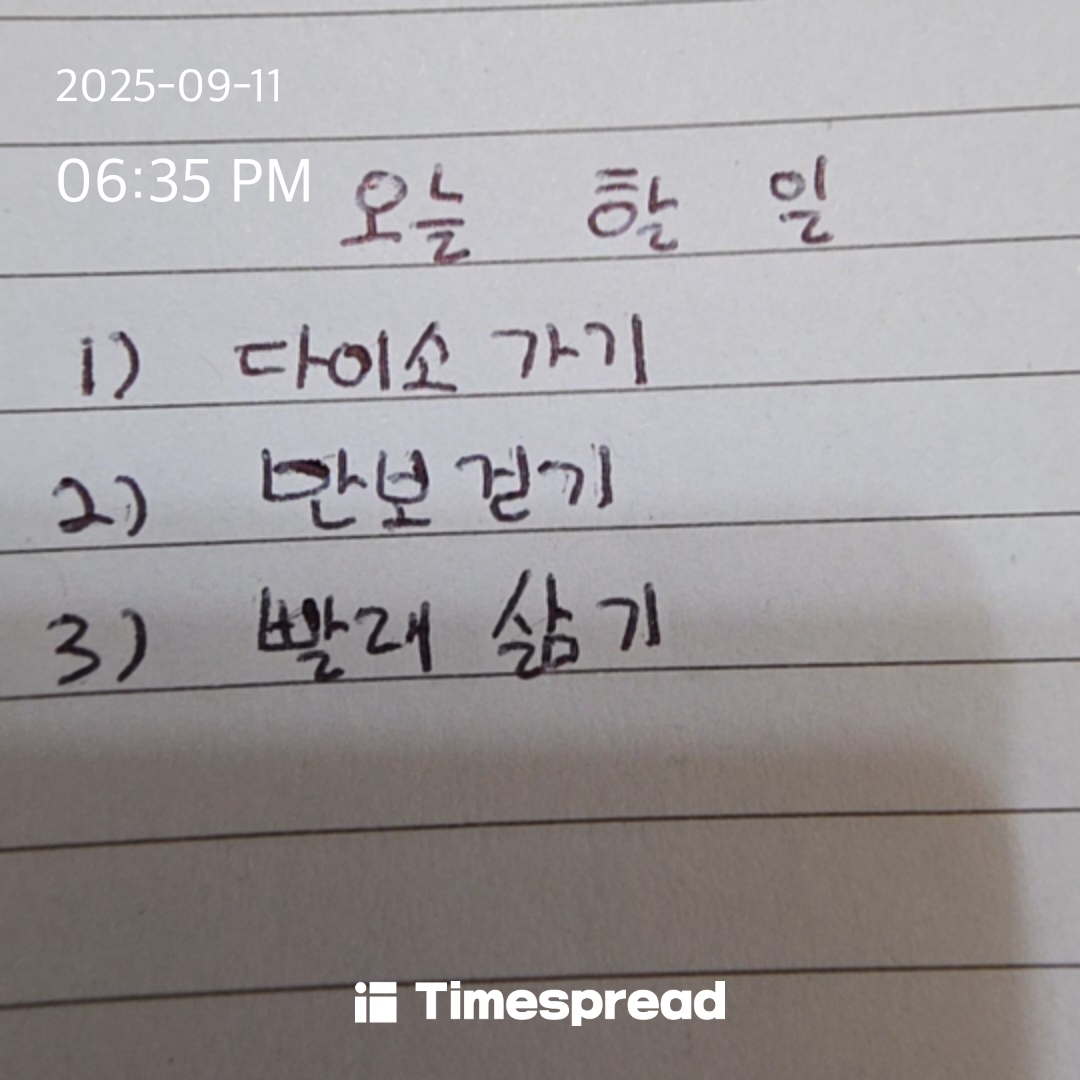 2025-09-11
06:35 PM
오늘 할 일
1) 다이소 가기
2) 만보 걷기
3) 빨래 삶기
Timespread